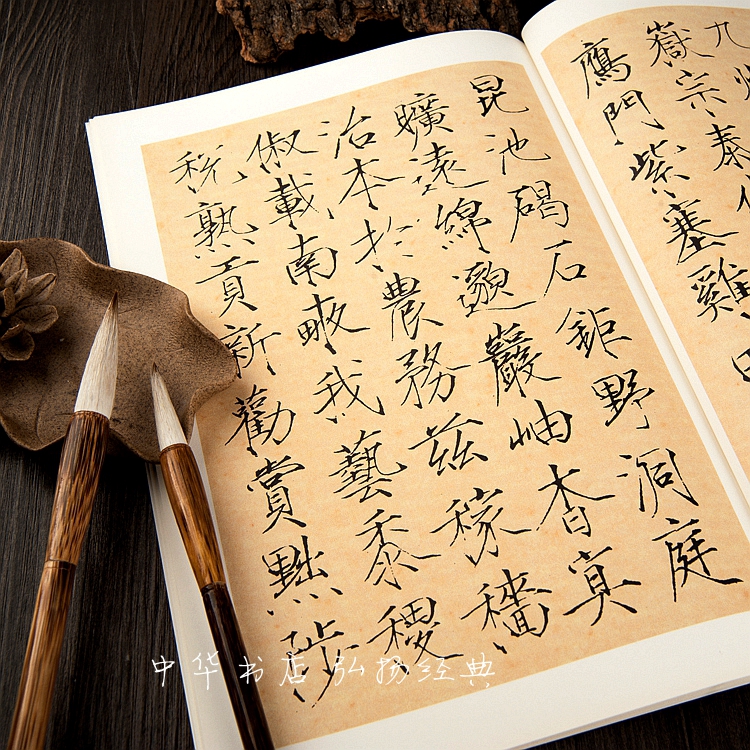 九州
嶽宗泰
鴈門紫塞雞
昆池碣石鉅野洞庭
曠遠綿邈巖岫杳冥
治本於農務茲稼穡
俶載南畝我藝黍稷
稅熟貢新勸賞黜陟
中华书店 弘扬经典